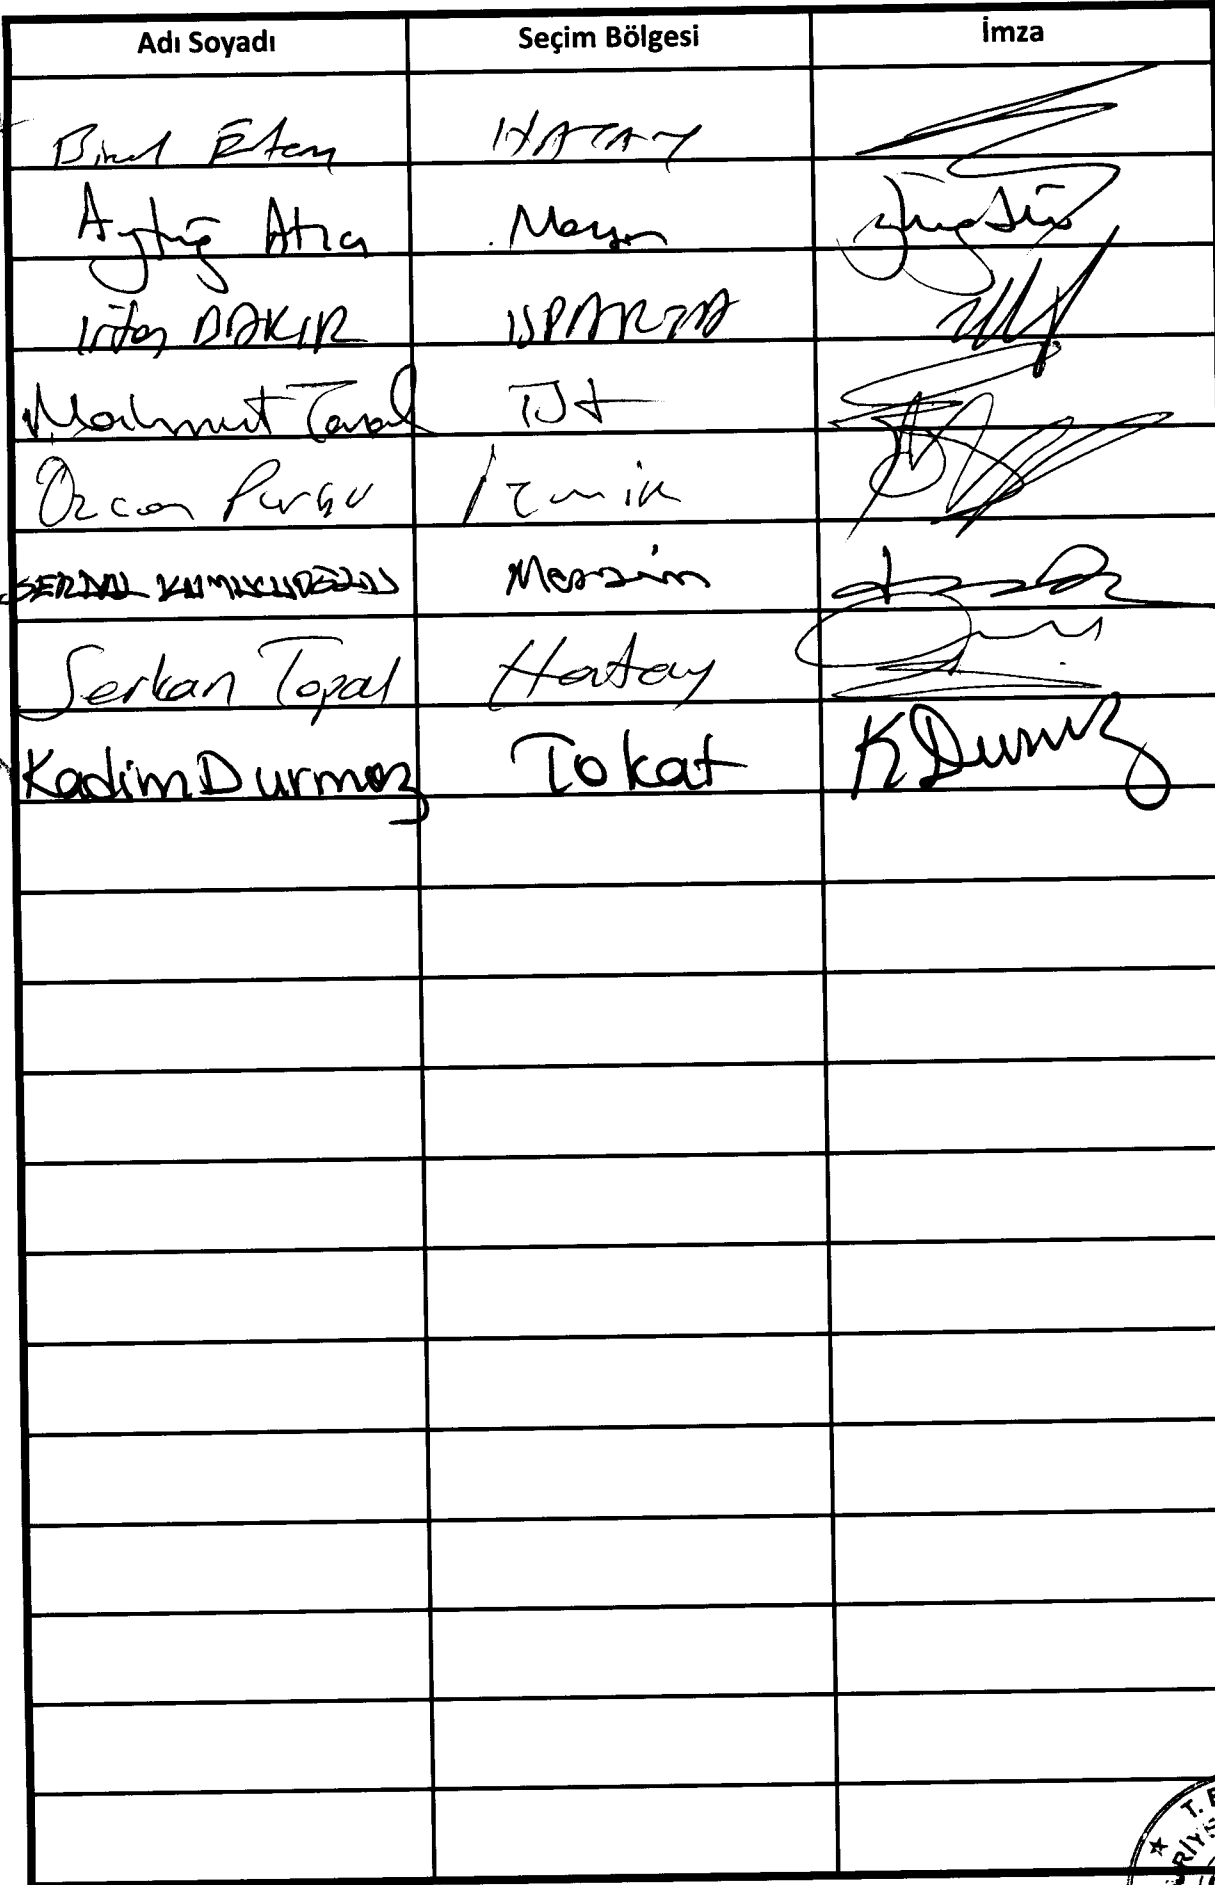 Adı Soyadı Seçim Bölgesi İmza
Birol Ertem HATAY
Aytuğ Atıcı Mersin
İrfan BAKIR ISPARTA
Mahmut Tanal İst
Özcan Purçu İzmir
SERDAL KUYUCUOĞLU Mersin
Serkan Topal Hatay
Kadim Durmaz Tokat K Durmaz
T.